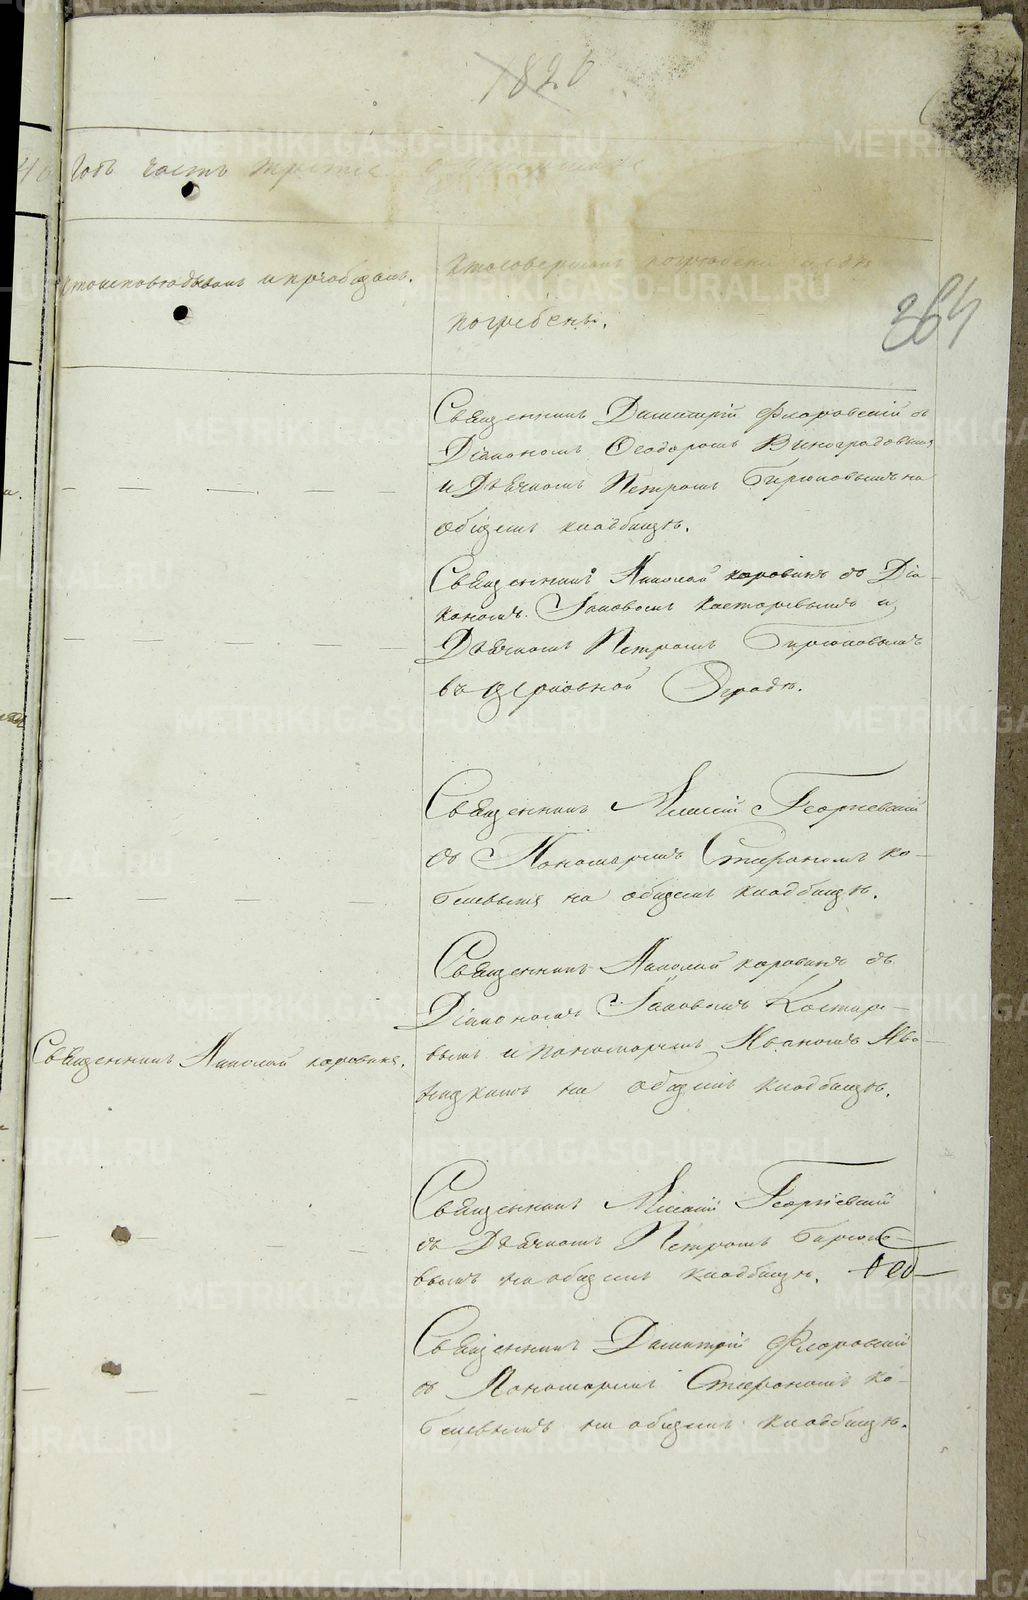 1826
Годъ часть третья
кто исповѣдывалъ и пріобщалъ.
кто совершалъ погребеніе и гдѣ
погребены.
364
Священникъ Димитрій Флоровскій съ
Діакономъ Ѳеодоромъ Виноградовымъ
и Дьячкомъ Петромъ Бирюковымъ на
общемъ кладбищѣ.
Священникъ Николай Коровинъ съ Діа-
кономъ Іаковомъ Касторевымъ и
Дьячкомъ Петромъ Бирюковымъ
въ церковной Оградѣ.
Священникъ Алексій Георгіевскій
съ Пономаремъ Стефаномъ Ко-
белевымъ на общемъ кладбищѣ.
Священникъ Николай Коровинъ.
Священникъ Николай Коровинъ съ
Діакономъ Іаковомъ Касторе-
вымъ и пономаремъ Иваномъ
на общемъ кладбищѣ.
Священникъ Алексій Георгіевскій
съ Дьячкомъ Петромъ Бирюко-
вымъ на общемъ кладбищѣ.
Священникъ Димитрій Флоровскій
съ Пономаремъ Стефаномъ Ко-
белевымъ на общемъ кладбищѣ.
METRIKI.GASO-URAL.RU